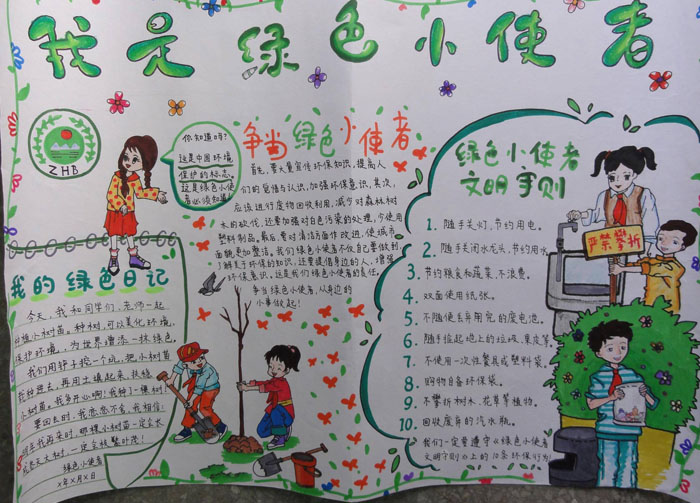 我是绿色小使者
ZHB
你知道吗?
这是中国环境
保护的标志。
这是绿色小使
者必须知道!
争当绿色小使者
首先,要大量宣传环保知识,提高人
们的思想与认识,加强环保意识。其次,
应该进行废物回收利用,减少对森林树
木的砍伐,还要加强对白色污染的处理,少使用
塑料制品。最后,要对清洁方面作改进,使城市
面貌更加整洁。我们绿色小使者不仅自己要做到,
了解关于环保的知识,还要提倡身边的人,增强
环保意识。这是我们绿色小使者的责任。
争当绿色小使者,从身边的
小事做起!
我的绿色日记
今天,我和同学们、老师一起
种植小树苗。种树,可以美化环境,
保护环境,为世界增添一抹绿色。
我们用铲子挖一个坑,把小树苗
我种进去,再用土填起来,扶稳
小树苗。我多开心啊!我种了一棵树!
要回去时,我恋恋不舍,我相信
明年我再来时,那棵小树苗一定会长
成参天大树,一定会枝繁叶茂!
绿色小使者
×年×月×日
绿色小使者
文明守则
1. 随手关灯,节约用电。
2. 随手关闭水龙头,节约用水
3. 节约粮食和蔬菜,不浪费。
4. 双面使用纸张。
5. 不随便丢弃用完的废电池。
6. 随手捡起地上的垃圾、果皮等。
7. 不使用一次性餐具或塑料袋。
8. 购物自备环保袋。
9. 不攀折树木、花草等植物。
10. 回收废弃的汽水瓶。
我们一定要遵守以绿色小使者
文明守则の上的10条环保行为!
严禁攀折